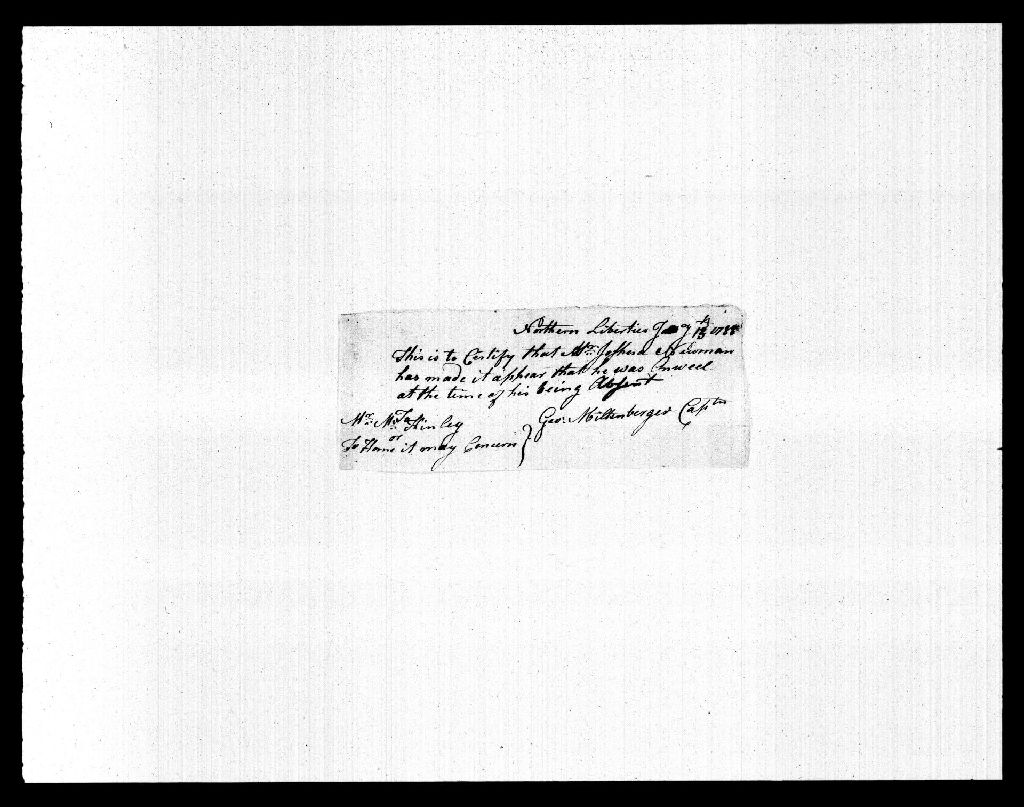 Northern Liberties Jany 13th 1788
This is to Certify that Mr. Joshua Newman
has made it appear that he was Unwell
at the time of his being Absent
Geo. Miltenberger Captn
Mr. McKinley
or
To Home it may Concern